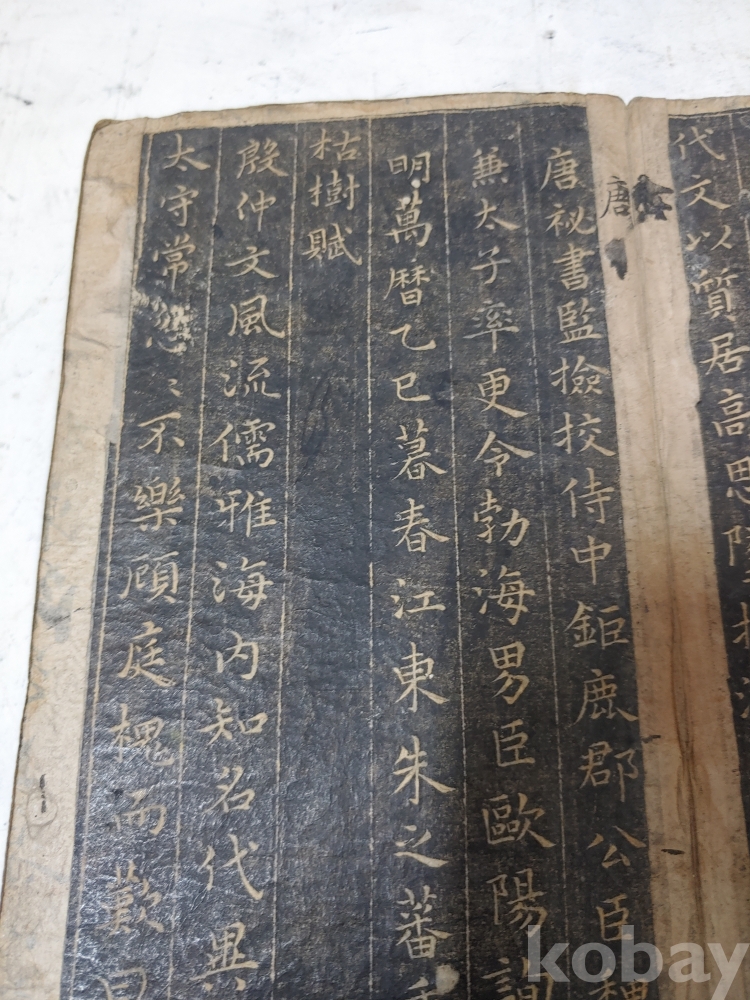 代文以質居高思
唐
唐祕書監撿挍侍中鉅鹿郡公臣
兼太子率更令勃海男臣歐陽詢
明萬曆乙巳暮春江東朱之蕃
枯樹賦
殷仲文風流儒雅海內知名代異
太守常忽〻不樂顧庭槐而歎曰
kobay